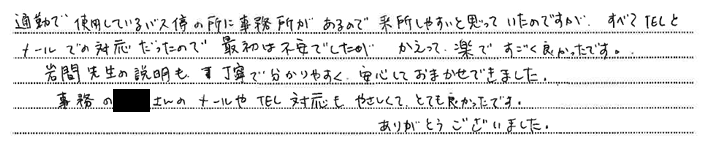 通勤で使用しているバス停の所に事務所があるので来所しやすいと思っていたのですが、すべてTELと
メールでの対応だったので最初は不安でしたが かえって楽ですごく良かったです。
岩間先生の説明も丁寧で分かりやすく、安心しておまかせできました。
事務の さんのメールやTEL対応もやさしくて、とても良かったです。
ありがとうございました。